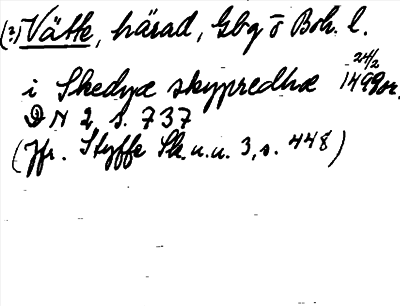 (?) Vätte, härad, Gbg o Boh. l.
i Skedyæ skypredhæ 24/2 1499 or.
DN 2 s. 737
(Jfr. Styffe Sk. u. u. 3, s. 448)